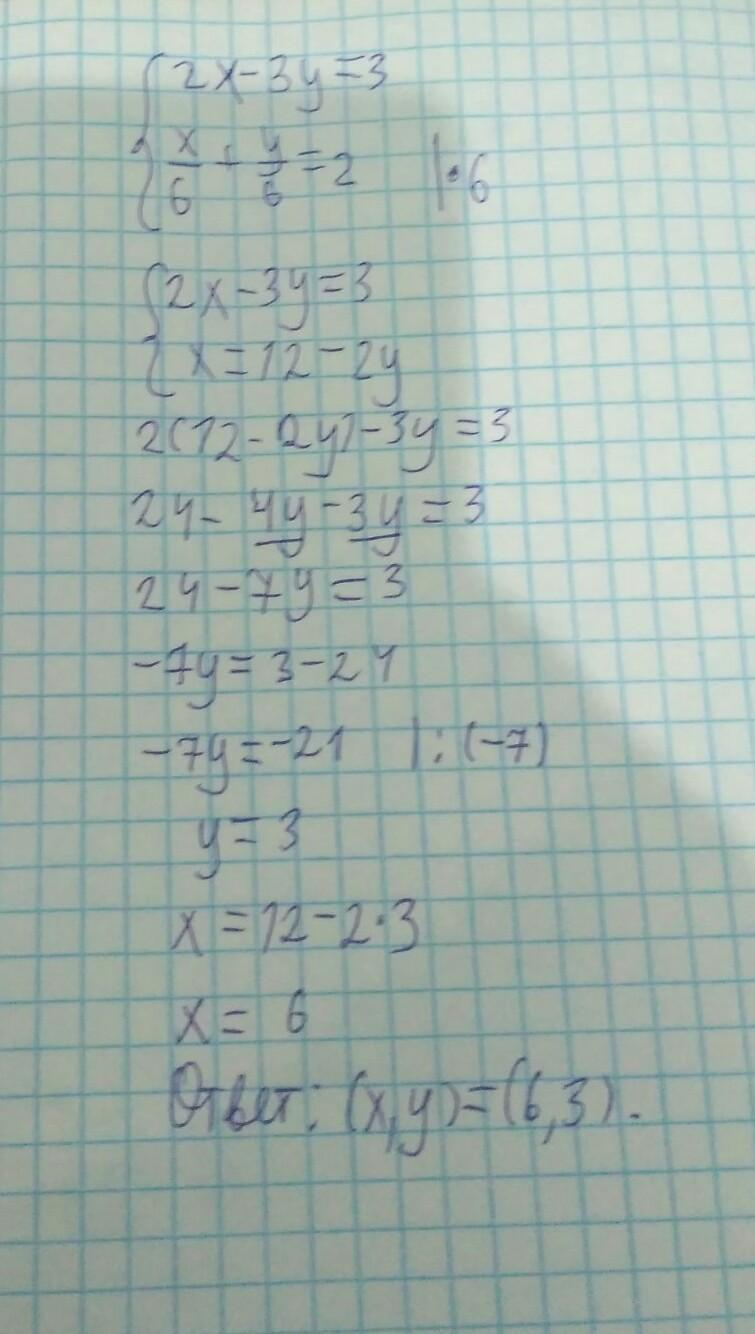 2x-3y=3
x/6+y/6=2 |·6
2x-3y=3
x=12-2y
2(12-2y)-3y=3
24-4y-3y=3
24-7y=3
-7y=3-24
-7y=-21 |:(-7)
y=3
x=12-2·3
x=6
Ответ: (x,y)=(6,3).